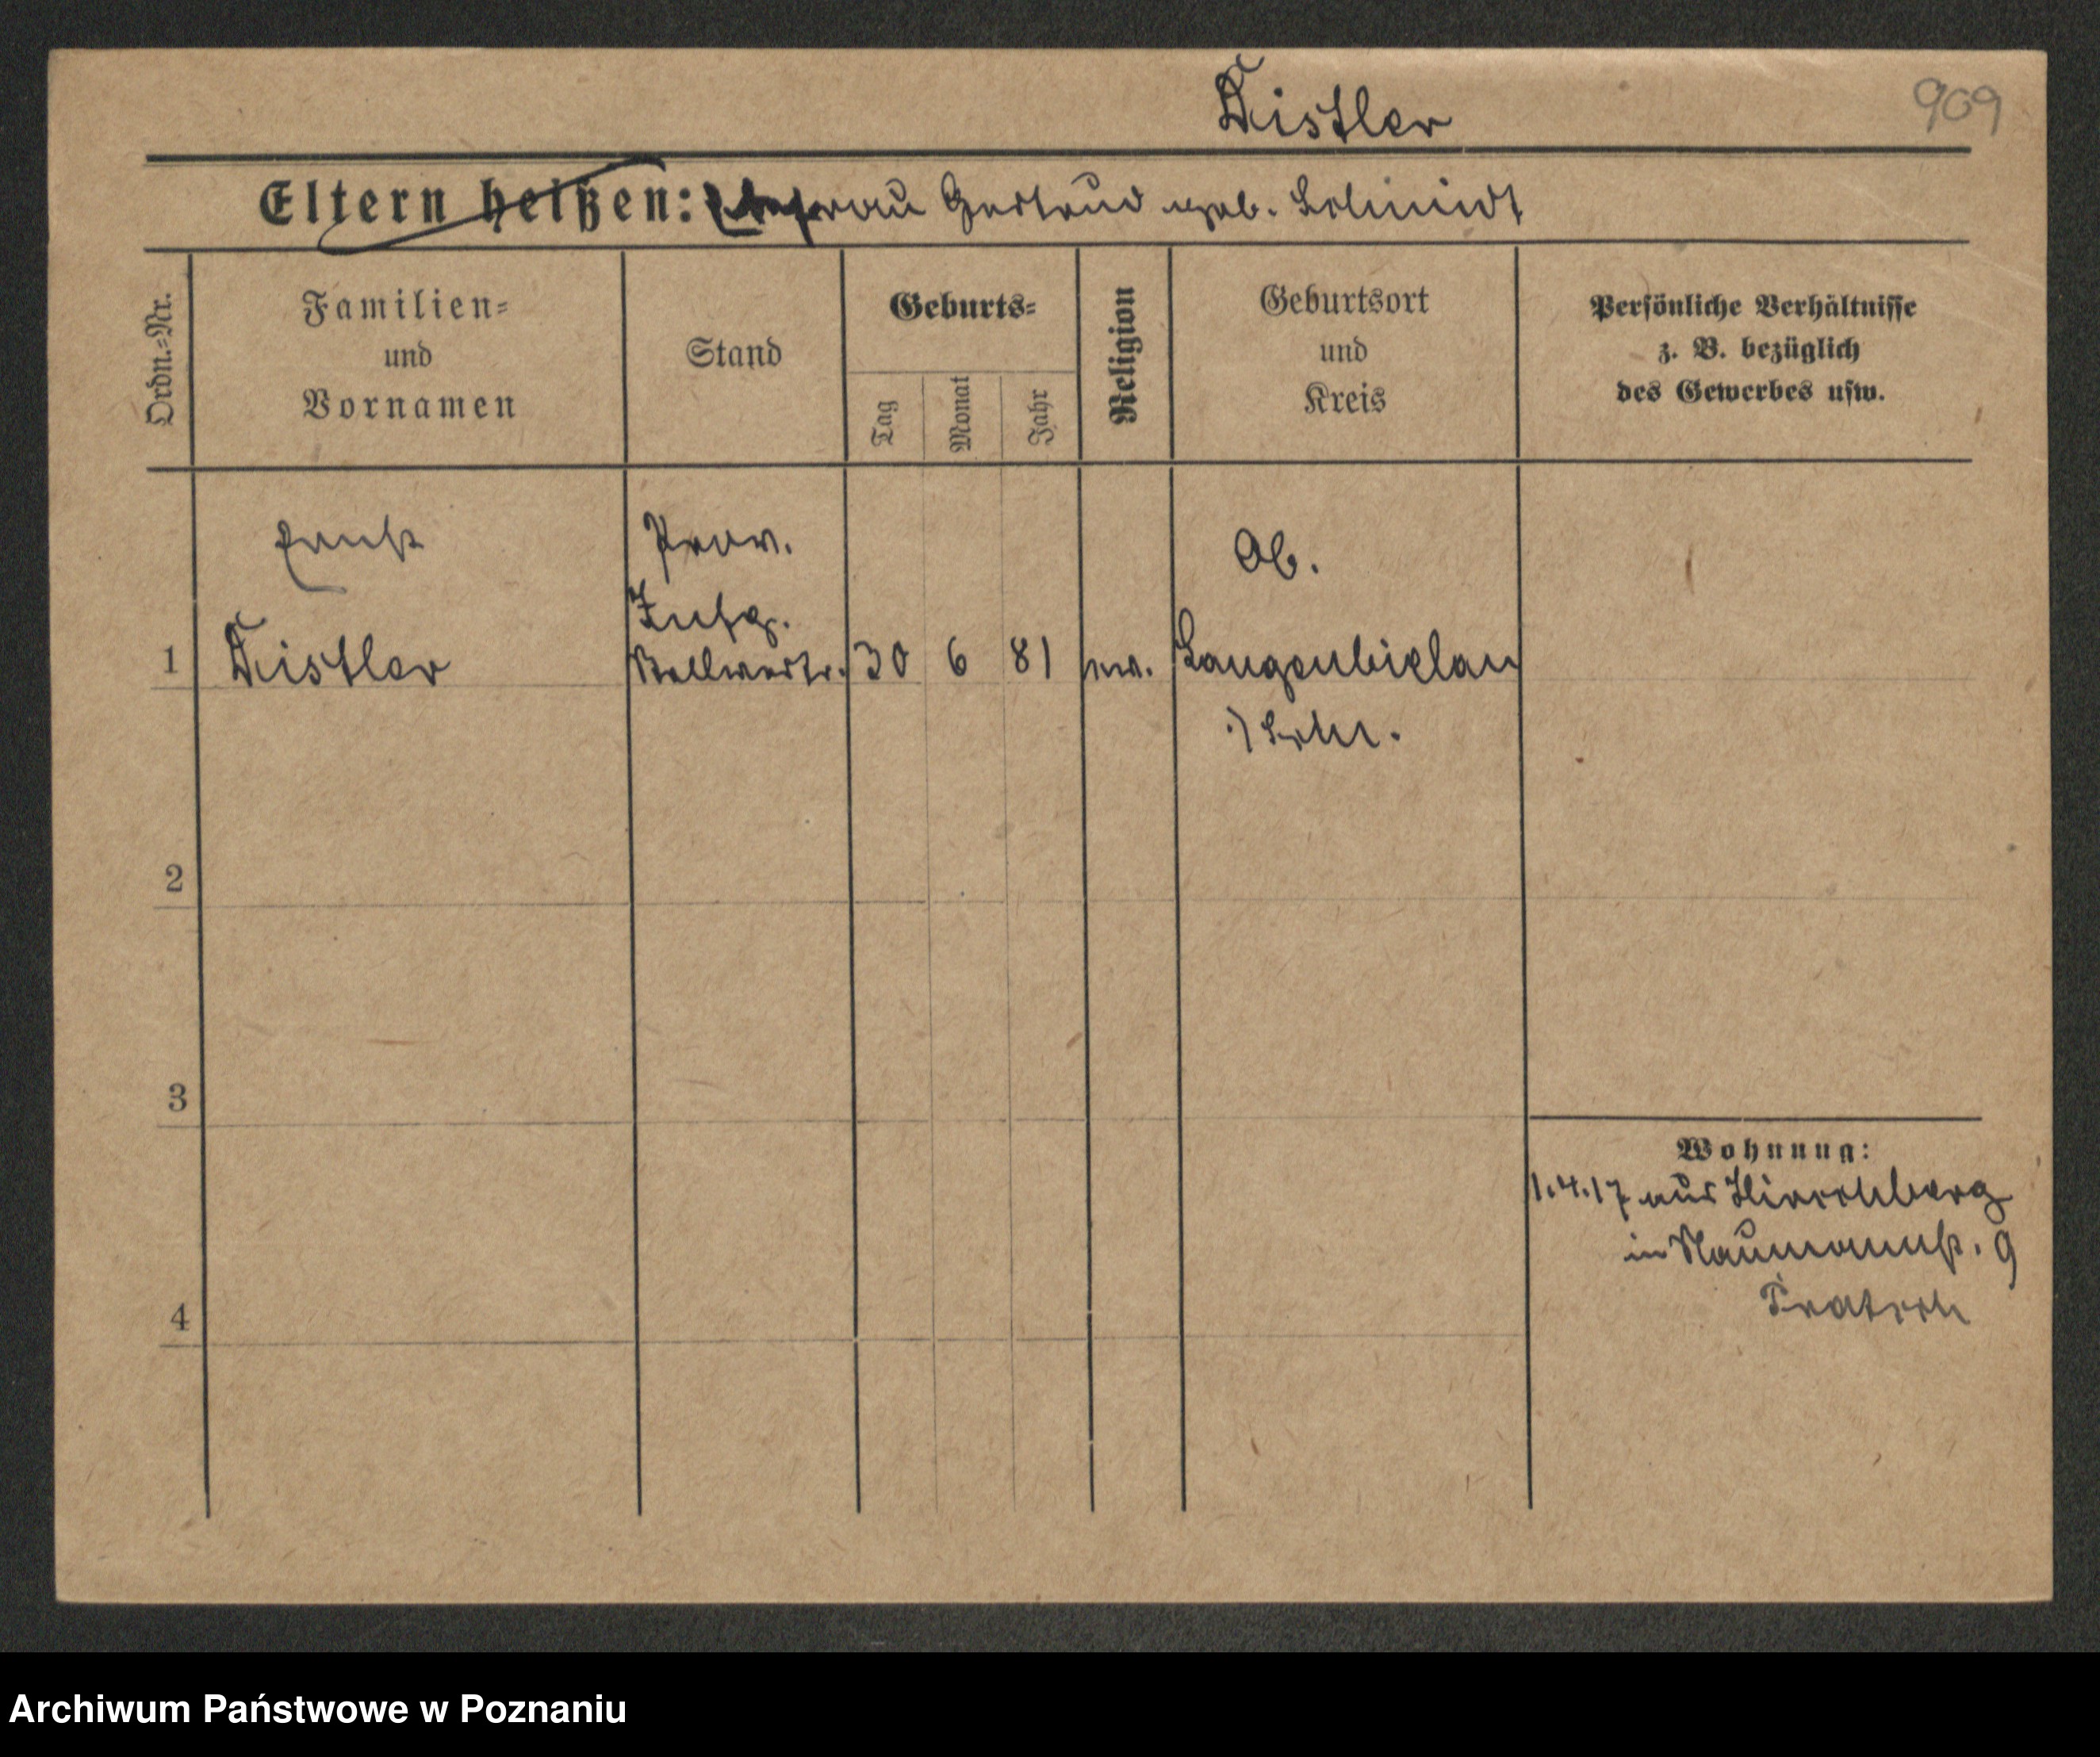 Kistler
909
Eltern heißen: Ehefrau Gertrud geb. Schmidt
Ordn.-Nr.
Familien-
und
Vornamen
Stand
Geburts-
Tag
Monat
Jahr
Religion
Geburtsort
und
Kreis
Persönliche Verhältnisse
z. B. bezüglich
des Gewerbes usw.
Ernst
Prov.
Ob.
1 Kistler
30 6 81 ev. Langenbielau
Schl.
2
3
4
Wohnung:
1.4.17 aus Hirschberg
in Naumannst. 9
Archiwum Państwowe w Poznaniu